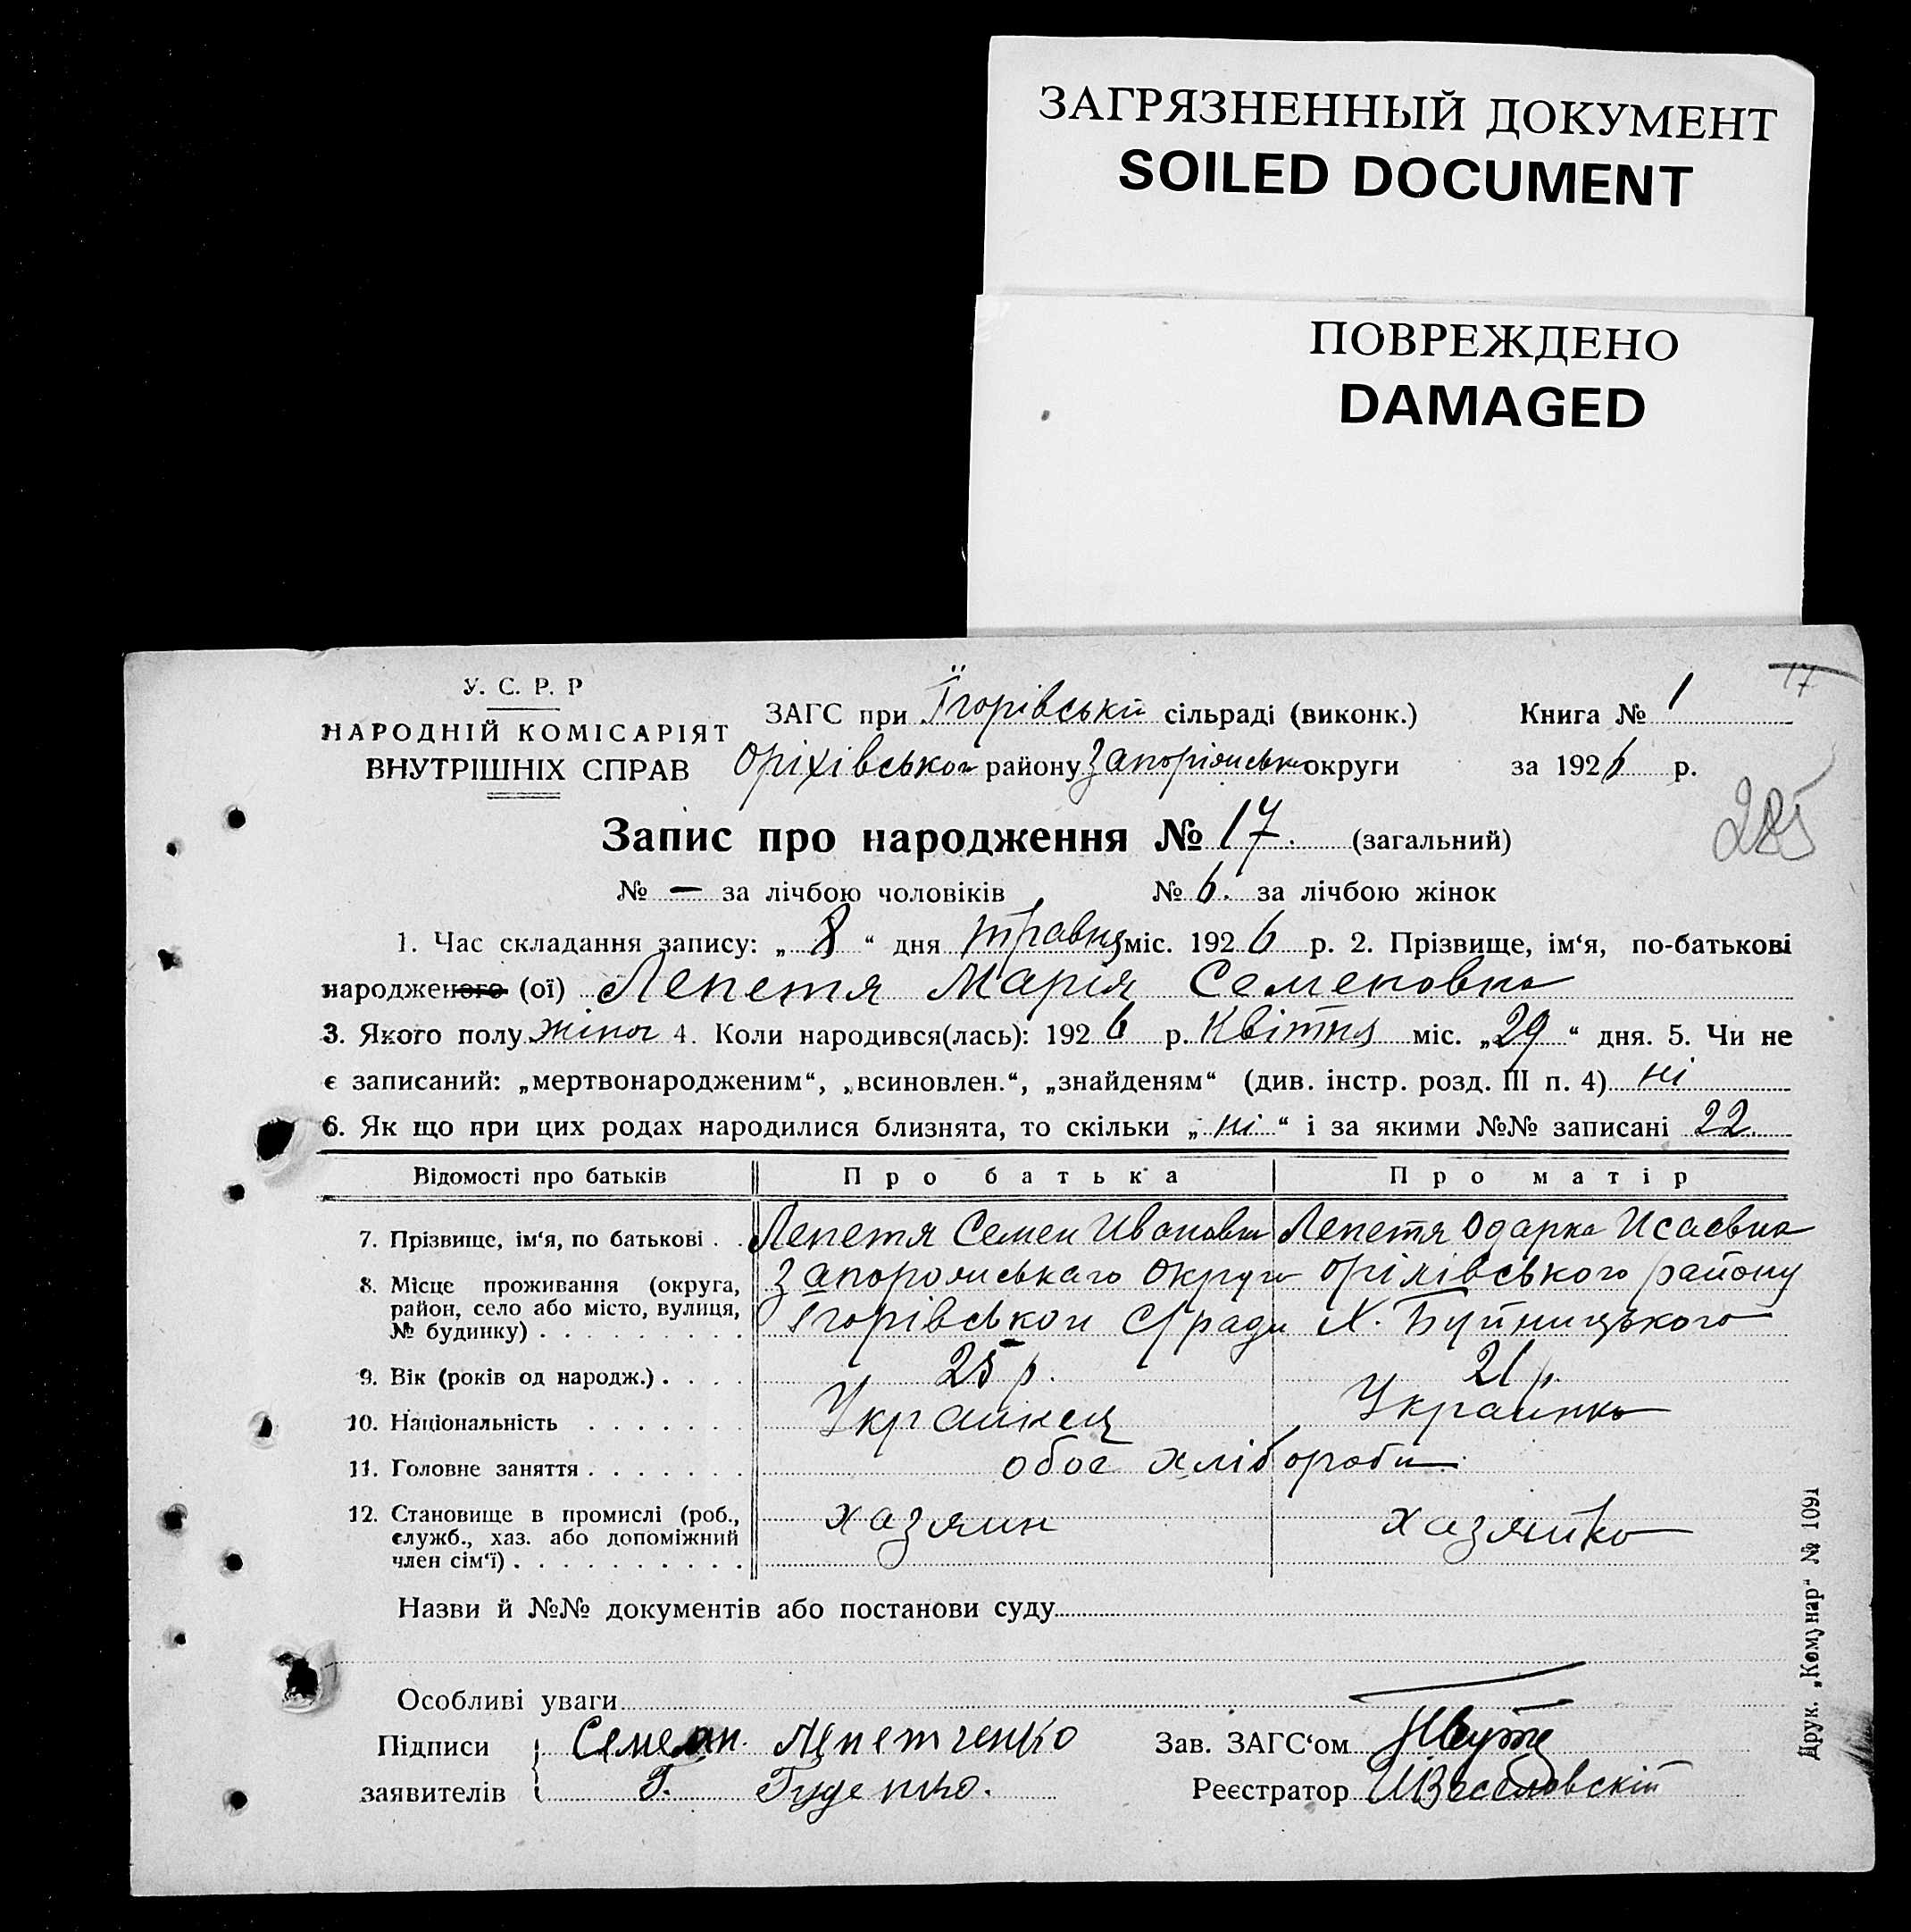 ЗАГРЯЗНЕННЫЙ ДОКУМЕНТ
SOILED DOCUMENT
ПОВРЕЖДЕНО
DAMAGED
17
У. С. Р. Р
НАРОДНІЙ КОМІСАРІЯТ
ВНУТРІШНІХ СПРАВ
ЗАГС при Ігорівські сільраді (виконк.) Книга № 1
Оріхівського району Запоріжськи округи за 1926 р.
285
Запис про народження № 17. (загальний)
№ — за лічбою чоловіків № 6. за лічбою жінок
1. Час складання запису: „ 8 “ дня травня міс. 1926 р. 2. Прізвище, ім‘я, по-батькові
народженого (ої) Лепетя Марія Семеновна
3. Якого полу жіноч 4. Коли народився(лась): 1926 р. Квітня міс. „29“ дня. 5. Чи не
є записаний: „мертвонародженим“, „всиновлен.“, „знайденям“ (див. інстр. розд. III п. 4) ні
6. Як що при цих родах народилися близнята, то скільки „ ні “ і за якими №№ записані 22
Відомості про батьків Про батька Про матір
7. Прізвище, ім‘я, по батькові . . Лепетя Семен Иванович Лепетя Одарка Исаевна
8. Місце проживання (округа, район, село або місто, вулиця, № будинку)
Запорожиськаго Округи оріхівського району
Ігорівськои С/ради Х.
9. Вік (років од народж.) . . . . 25 р. 21 р.
10. Національність . . . . . . . Украинец Украинка
11. Головне заняття . . . . . . . обоє хлібороби
12. Становище в промислі (роб., служб., хаз. або допоміжний член сім‘ї) . . . . . . . . . . хазяин хазяйка
Назви й №№ документів або постанови суду
Особливі уваги
Підписи заявителів
Семен Лепетченко
Г. Гуденко.
Зав. ЗАГС‘ом
Реєстратор Веселовскій
Друк. „Комунар“ № 1091